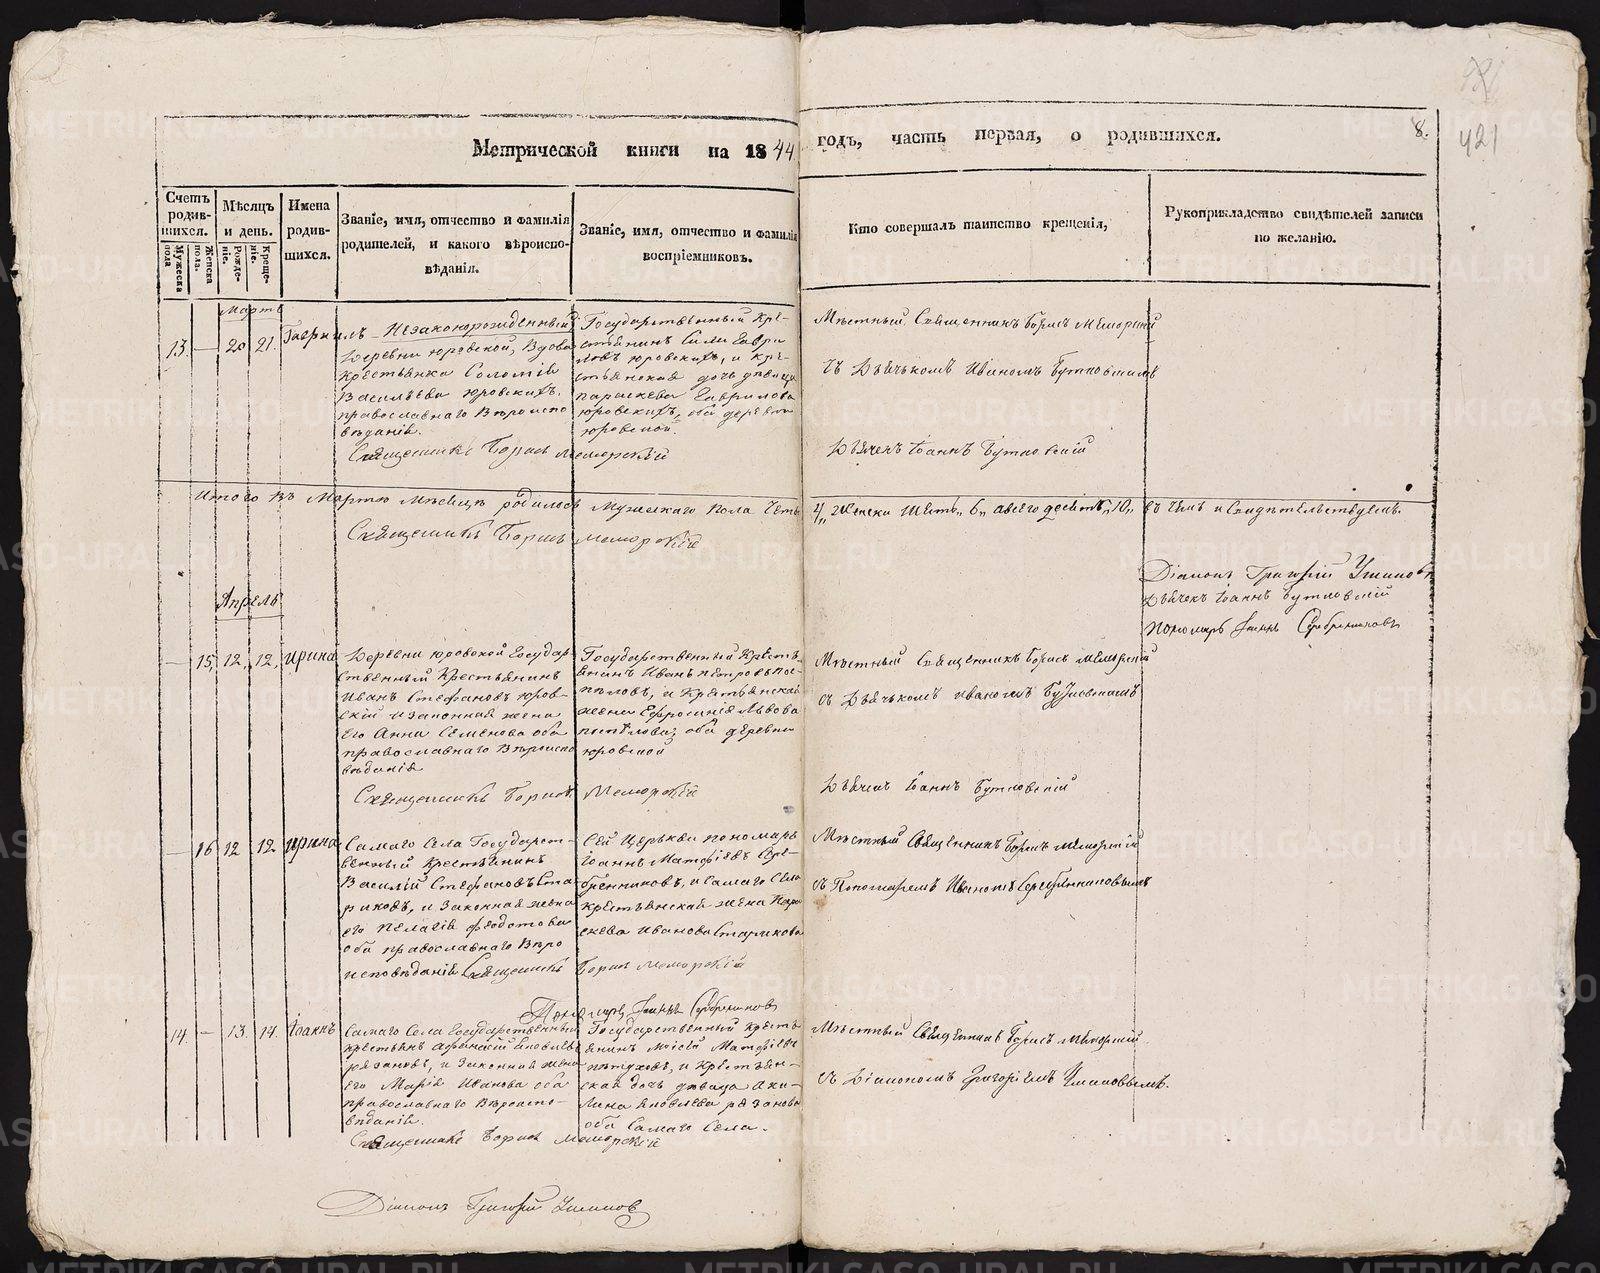 8.
421
Метрической книги на 1844 годъ, часть первая, о родившихся.
Счетъ родившихся.
Мужеска пола
Женска пола.
Мѣсяцъ и день.
Рожденіе.
Крещеніе.
Имена родившихся.
Званіе, имя, отчество и фамилія родителей, и какого вѣроисповѣданія.
Званіе, имя, отчество и фамилія воспріемниковъ.
Кто совершалъ таинство крещенія,
Рукоприкладство свидѣтелей записи по желанію.
Мартъ
13. — 20 21. Гавріилъ
Незаконорожденный
Деревни Юровской, Вдова
Крестьянка Соломія
Васильева Юровскихъ.
православнаго Вѣроиспо
вѣданія.
Государственный Кре-
стьянинъ Сила Гаври
ловъ Юровскихъ, и Кре-
стьянская дочь дѣвица
параскева Гаврилова
Юровскихъ, оба деревни
Юровской.
Священникъ Борисъ Меморскій
Мѣстный Священникъ Борисъ Меморскій
Съ Дьячькомъ Иваномъ Бутковскимъ
Дьячекъ Іоаннъ Бутковскій
Итого въ Мартѣ Мѣсяцѣ родилось Мужескаго Пола Четы 4,, Женска Шесть,, 6,, а всего десять,, 10,, въ чемъ и Свидѣтельствуемъ.
Священникъ Борисъ Меморскій
Діаконъ Григорій
Дьячекъ Іоаннъ Бутковскій
Пономарь Іоаннъ Серебренниковъ
Апрѣль
— 15, 12, 12, Ирина
Деревни Юровской Государ-
ственный Крестьянинъ
Иванъ Стефановъ Юров-
скій и законная жена
Его Анна Семенова оба
православнаго Вѣроиспо
вѣданія
Государственный Кресть-
янинъ Иванъ Петровъ
и Крестьянская
жена Ефросинія Львова
оба деревни
Юровской
Священникъ Борисъ Меморскій
Мѣстный Священникъ Борисъ Меморскій
Съ Дьячькомъ Иваномъ Бутковскимъ
Дьячекъ Іоаннъ Бутковскій
— 16 12 12 Ирина
Самаго Села Государст-
венный Крестьянинъ
Василій Стефановъ Ста-
риковъ, и Законная жена
его Пелагія Феодотова
оба православнаго Вѣро
исповѣданія
Сей Церькви пономарь
Іоаннъ Матфіевъ Сере-
бренниковъ, и Самаго Села
Крестьянская жена Пара
скева Иванова Старикова
Священникъ Борисъ Меморскій
Пономарь Іоаннъ Серебренниковъ
Мѣстный Священникъ Борисъ Меморскій
Съ Пономаремъ Иваномъ Серебренниковымъ
14. — 13. 14. Іоаннъ
Самаго Села Государственный
Крестьян. Афанасій Яковлевъ
Рязановъ, и Законная жена
Его Марія Иванова оба
православнаго Вѣроиспо-
вѣданія.
Государственный Кресть
янинъ Моисей Матфіевъ
Пѣтуховъ, и Крестьян-
ская дочь дѣвица Аки-
лина Яковлева Рязанова
оба Самаго Села.
Священникъ Борисъ Меморскій
Мѣстный Священникъ Борисъ Меморскій
Съ Діакономъ Григоріемъ
Діаконъ Григорій
METRIKI.GASO-URAL.RU